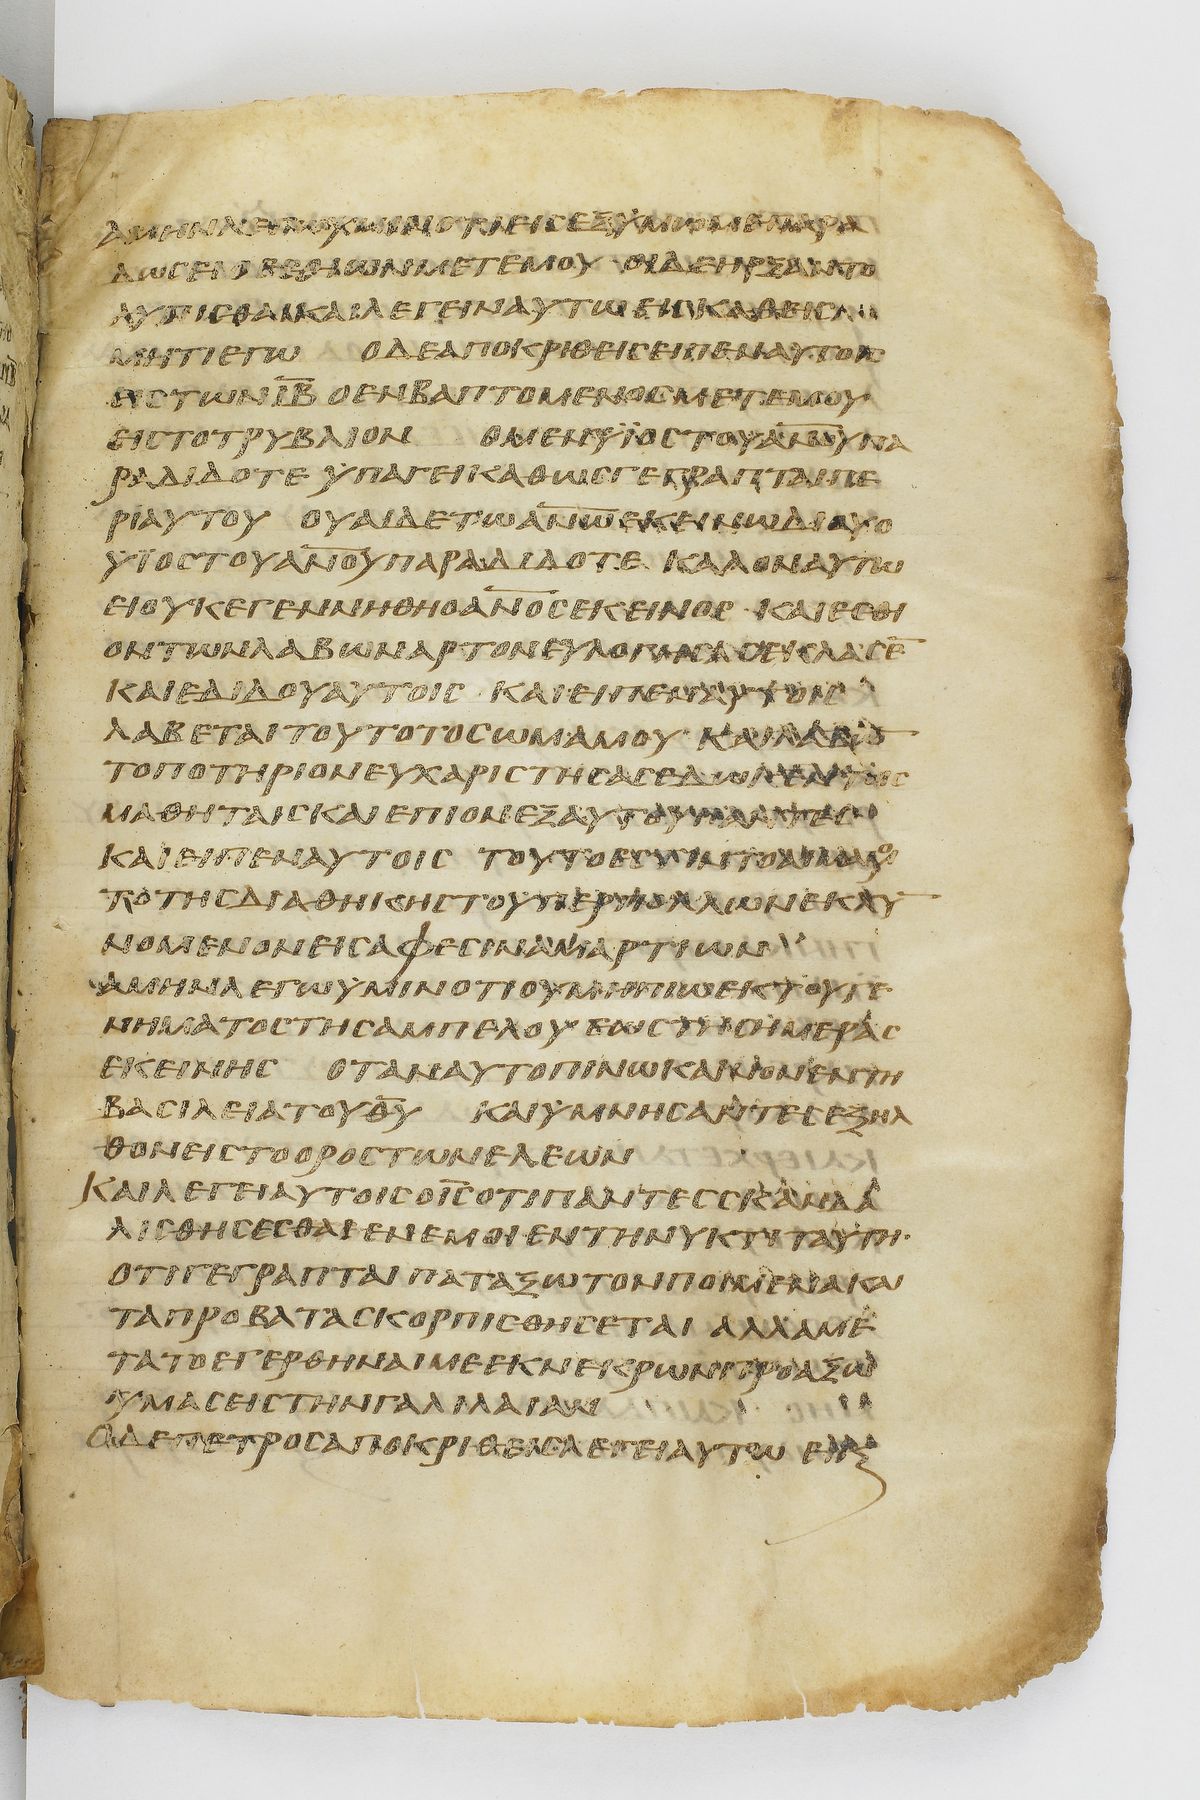 ΑΜΗΝΛΕΓΩΥΜΙΝΟΤΙΕΙϹΕΞΥΜΩΝΜΕΠΑΡΑ
ΔΩϹΕΙΟΕϹΘΙΩΝΜΕΤΕΜΟΥ ΟΙΔΕΗΡΞΑΝΤΟ
ΛΥΠΙϹΘΑΙΚΑΙΛΕΓΕΙΝΑΥΤΩΕΙϹΚΑΘΕΙϹ
ΜΗΤΙΕΓΩ ΟΔΕΑΠΟΚΡΙΘΕΙϹΕΙΠΕΝΑΥΤΟΙϹ
ΕΙϹΤΩΝΙ̅Β̅ ΟΕΝΒΑΠΤΟΜΕΝΟϹΜΕΤΕΜΟΥ
ΕΙϹΤΟΤΡΥΒΛΙΟΝ ΟΜΕΝΥΪΟϹΤΟΥΑ̅Ν̅Ο̅Υ̅ΠΑ
ΡΑΔΙΔΟΤΕ ΥΠΑΓΕΙΚΑΘΩϹΓΕΓΡΑΠΤΑΙΠΕ
ΡΙΑΥΤΟΥ ΟΥΑΙΔΕΤΩΑ̅Ν̅Ω̅ΕΚΕΙΝΩΔΙΟΥΟ
ΥΪΟϹΤΟΥΑ̅Ν̅Ο̅Υ̅ΠΑΡΑΔΙΔΟΤΕ ΚΑΛΟΝΑΥΤΩ
ΕΙΟΥΚΕΓΕΝΝΗΘΗΟΑ̅Ν̅Ο̅Ϲ̅ΕΚΕΙΝΟϹ ΚΑΙΕϹΘΙ
ΟΝΤΩΝΛΑΒΩΝΑΡΤΟΝΕΥΛΟΓΗϹΑϹΕΚΛΑϹΕ̅
ΚΑΙΕΔΙΔΟΥΑΥΤΟΙϹ ΚΑΙΕΙΠΕΝΑΥΤΟΙϹ
ΛΑΒΕΤΑΙΤΟΥΤΟΤΟϹΩΜΑΜΟΥ ΚΑΙΛΑΒΩ̅
ΤΟΠΟΤΗΡΙΟΝΕΥΧΑΡΙϹΤΗϹΑϹΕΔΩΚΕΝΤΟΙϹ
ΜΑΘΗΤΑΙϹΚΑΙΕΠΙΟΝΕΞΑΥΤΟΥΠΑΝΤΕϹ
ΚΑΙΕΙΠΕΝΑΥΤΟΙϹ ΤΟΥΤΟΕϹΤΙΝΤΟΑΙΜΑΜΟΥ
ΤΟΤΗϹΔΙΑΘΗΚΗϹΤΟΥΠΕΡΠΟΛΛΩΝΕΚΧΥ
ΝΟΜΕΝΟΝΕΙϹΑΦΕϹΙΝΑΜΑΡΤΙΩΝ
ΑΜΗΝΛΕΓΩΥΜΙΝΟΤΙΟΥΜΗΠΙΩΕΚΤΟΥΓΕ
ΝΗΜΑΤΟϹΤΗϹΑΜΠΕΛΟΥΕΩϹΤΗϹΗΜΕΡΑϹ
ΕΚΕΙΝΗϹ ΟΤΑΝΑΥΤΟΠΙΝΩΚΑΙΝΟΝΕΝΤΗ
ΒΑϹΙΛΕΙΑΤΟΥΘ̅Υ̅ ΚΑΙΥΜΝΗϹΑΝΤΕϹΕΞΗΛ
ΘΟΝΕΙϹΤΟΟΡΟϹΤΩΝΕΛΕΩΝ
ΚΑΙΛΕΓΕΙΑΥΤΟΙϹΟΙ̅Ϲ̅ΟΤΙΠΑΝΤΕϹϹΚΑΝΔΑ
ΛΙϹΘΗϹΕϹΘΑΙΕΝΕΜΟΙΕΝΤΗΝΥΚΤΙΤΑΥΤΗ
ΟΤΙΓΕΓΡΑΠΤΑΙΠΑΤΑΞΩΤΟΝΠΟΙΜΕΝΑΚΑΙ
ΤΑΠΡΟΒΑΤΑϹΚΟΡΠΙϹΘΗϹΕΤΑΙ ΑΛΛΑΜΕ
ΤΑΤΟΕΓΕΡΘΗΝΑΙΜΕΕΚΝΕΚΡΩΝΠΡΟΑΞΩ
ΥΜΑϹΕΙϹΤΗΝΓΑΛΙΛΑΙΑΝ
ΟΔΕΠΕΤΡΟϹΑΠΟΚΡΙΘΕΙϹΛΕΓΕΙΑΥΤΩ